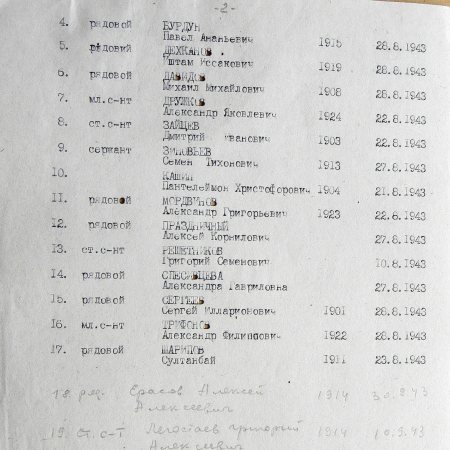 -2-
4. рядовой БУРДУН
Павел Ананьевич 1915 28.8.1943
5. рядовий ДЕХКАНОВ
Иштам Иссакович 1919 28.8.1943
6. рядовой ДАВИДОВ
Михаил Михайлович 1908 28.8.1943
7. мл.с-нт ДРУЖКОВ
Александр Яковлевич 1924 22.8.1943
8. ст.с-нт ЗАЙЦЕВ
Дмитрий Иванович 1903 22.8.1943
9. сержант ЗИНОВЬЕВ
Семен Тихонович 1913 27.8.1943
10. КАШИН
Пантелеймон Христофорович 1904 21.8.1943
11. рядовой МОРДВИНОВ
Александр Григорьевич 1923 22.8.1943
12. рядовой ПРАЗДНИЧНЫЙ
Алексей Корнилович 27.8.1943
13. ст.с-нт РЕШЕТНИКОВ
Григорий Семенович 10.8.1943
14. рядовой СПЕСИВЦЕВА
Александра Гавриловна 27.8.1943
15. рядовой СЕРГЕЕВ
Сергей Илларионович 1901 28.8.1943
16. мл.с-нт ТРИФОНОВ
Александр Филиппович 1922 28.8.1943
17. рядовой ШАРИПОВ
Султанбай 1911 23.8.1943
18. ряд. Ерасов Алексей 1914 30.8.43
Алексеевич
19. ст.с-т Легостаев григорий 1914 10.9.43
Алексеевич